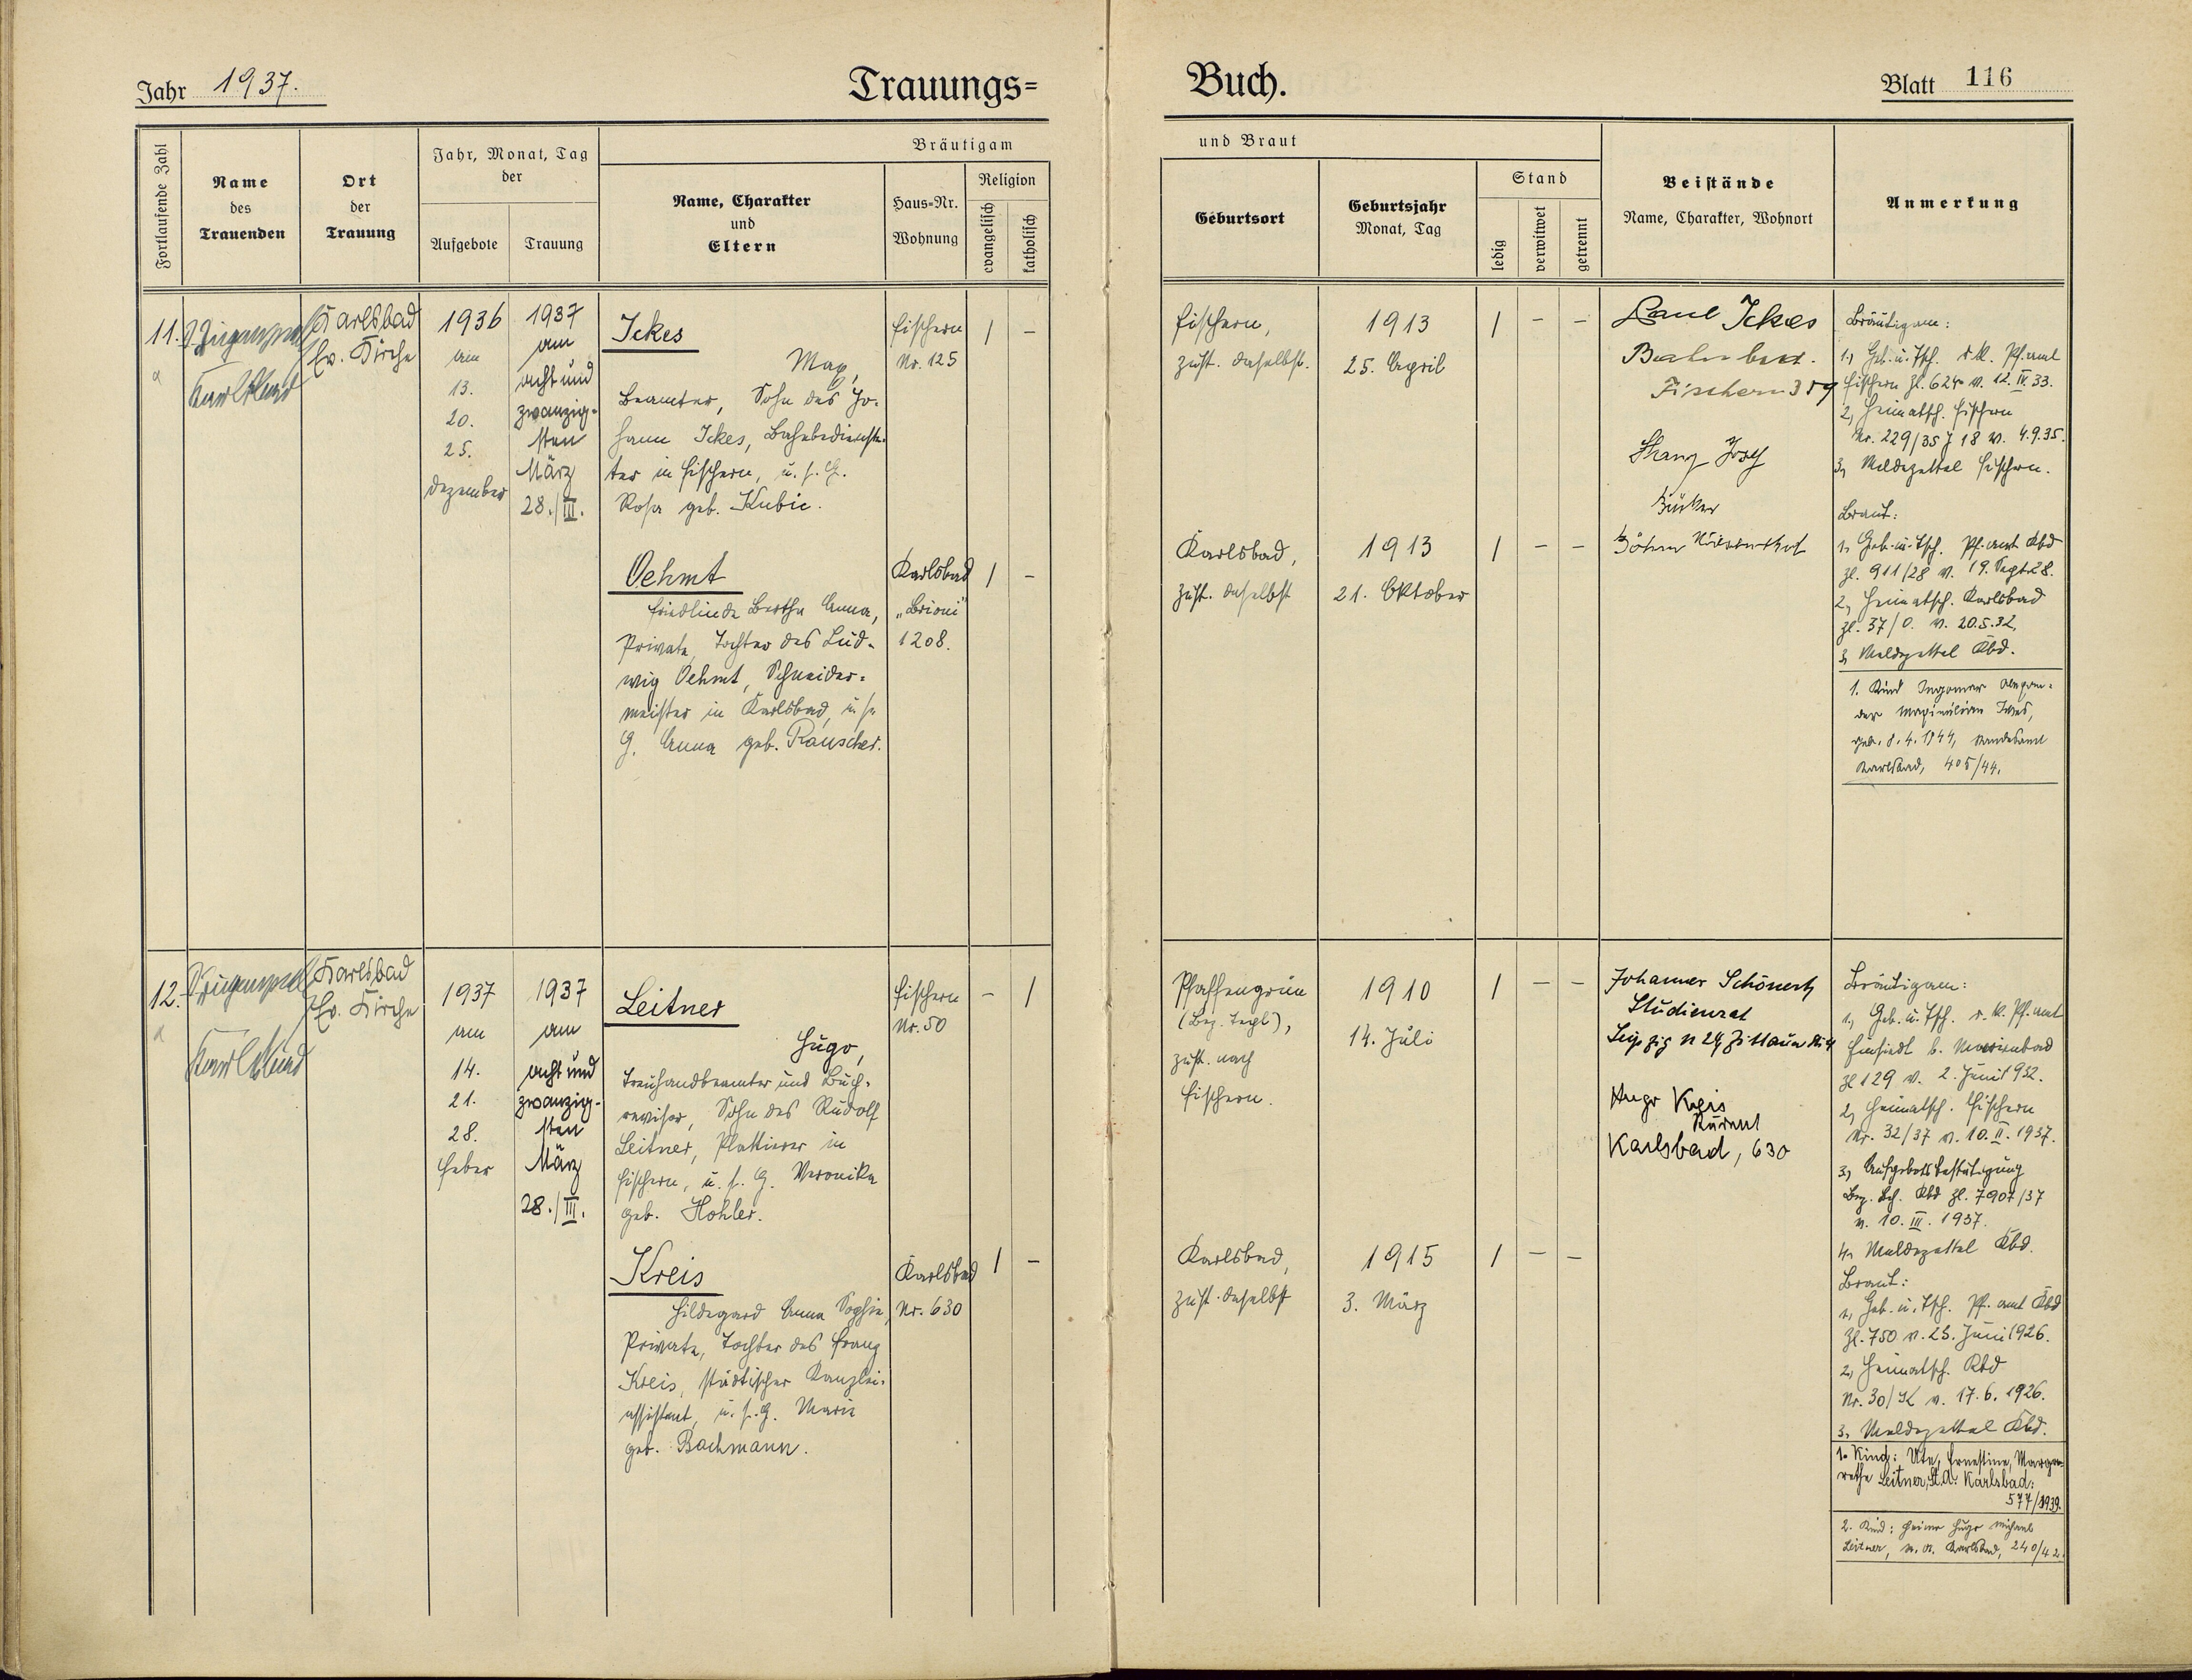 Jahr 1937.
Trauungs=
Buch.
Blatt 116
Fortlaufende Zahl
Name
des
Trauenden
Ort
der
Trauung
Jahr, Monat, Tag
der
Aufgebote
Trauung
Bräutigam
Name, Charakter
und
Eltern
Haus=Nr.
Wohnung
Religion
evangelisch
katholisch
und Braut
Geburtsort
Geburtsjahr
Monat, Tag
Stand
ledig
verwitwet
getrennt
Beistände
Name, Charakter, Wohnort
Anmerkung
11.
Karlsbad
Ev. Kirche
1936
am
13.
20.
25.
Dezember
1937
am
acht und
zwanzig-
sten
März
28./III.
Ickes
Max,
Beamter, Sohn des Jo-
hann Ickes, Bahnbedienste-
ter in Fischern, u. s. G.
Rosa geb. Kubic.
Fischern
Nr. 125
| –
Fischern,
zust. daselbst.
1913
25. April
| – –
Ickes
Fischern 359
Josef
Bräutigam:
1., Geb. u. Tsch. r. k. Pf. amt
Fischern Zl. 624 v. 12. IV. 33.
2, Heimatsch. Fischern
Nr. 229/35 J 18 v. 4.9.35.
3, Meldezettel Fischern.
Oehmt
Friedlinde Bertha Anna,
Private, Tochter des Lud-
wig Oehmt, Schneider-
meister in Karlsbad, u. s.
G. Anna geb. Rauscher.
Karlsbad
„Brioni"
1208.
| –
Karlsbad,
zust. daselbst
1913
21. Oktober
| – –
Braut:
1, Geb. u. Tsch. Pf. amt Kbd
Zl. 911/28 v. 19. Sept. 28.
2, Heimatsch. Karlsbad
Zl. 37/O. v. 20.5.32,
3, Meldezettel Kbd.
1. Kind Ingomar Alexan-
der Maximilian Ickes,
geb. 8. 4. 1944, Standesamt
Karlsbad, 405/44.
12.
Karlsbad
Ev. Kirche
1937
am
14.
21.
28.
Feber
1937
am
acht und
zwanzig-
sten
März
28./III.
Leitner
Hugo,
Treuhandbeamter und Buch-
revisor, Sohn des Rudolf
Leitner, Plattierer in
Fischern, u. s. G. Veronika
geb. Hohler.
Fischern
Nr. 50
– |
Pfaffengrün
(Bez. Tepl),
zust. nach
Fischern.
1910
14. Juli
| – –
Johannes
Studienrat
Leipzig N 24
Hugo Kreis
Karlsbad, 630
Bräutigam:
1., Geb. u. Tsch. r. k. Pf. amt
Einsiedl b. Marienbad
Zl 129 v. 2. Juni 1932.
2, Heimatsch. Fischern
Nr. 32/37 v. 10. II. 1937.
3, Aufgebotsbestätigung
Bez. Beh. Kbd Zl. 7907/37
v. 10. III. 1937.
4, Meldezettel Kbd.
Kreis
Hildegard Anna Sophie,
Private, Tochter des Franz
Kreis, städtischer Kanzlei-
assistent, u. s. G. Marie
geb. Bachmann.
Karlsbad
Nr. 630
| –
Karlsbad,
zust. daselbst
1915
3. März
| – –
Braut:
1, Geb. u. Tsch. Pf. amt Kbd
Zl. 750 v. 23. Juni 1926.
2, Heimatsch. Kbd
Nr. 30/K v. 17. 6. 1926.
3, Meldezettel Kbd.
1. Kind: Ute, Ernestine, Marga-
rethe Leitner, St.A. Karlsbad:
577/1939.
2. Kind: Heimo Hugo Michael
Leitner, Karlsbad, 240/42.